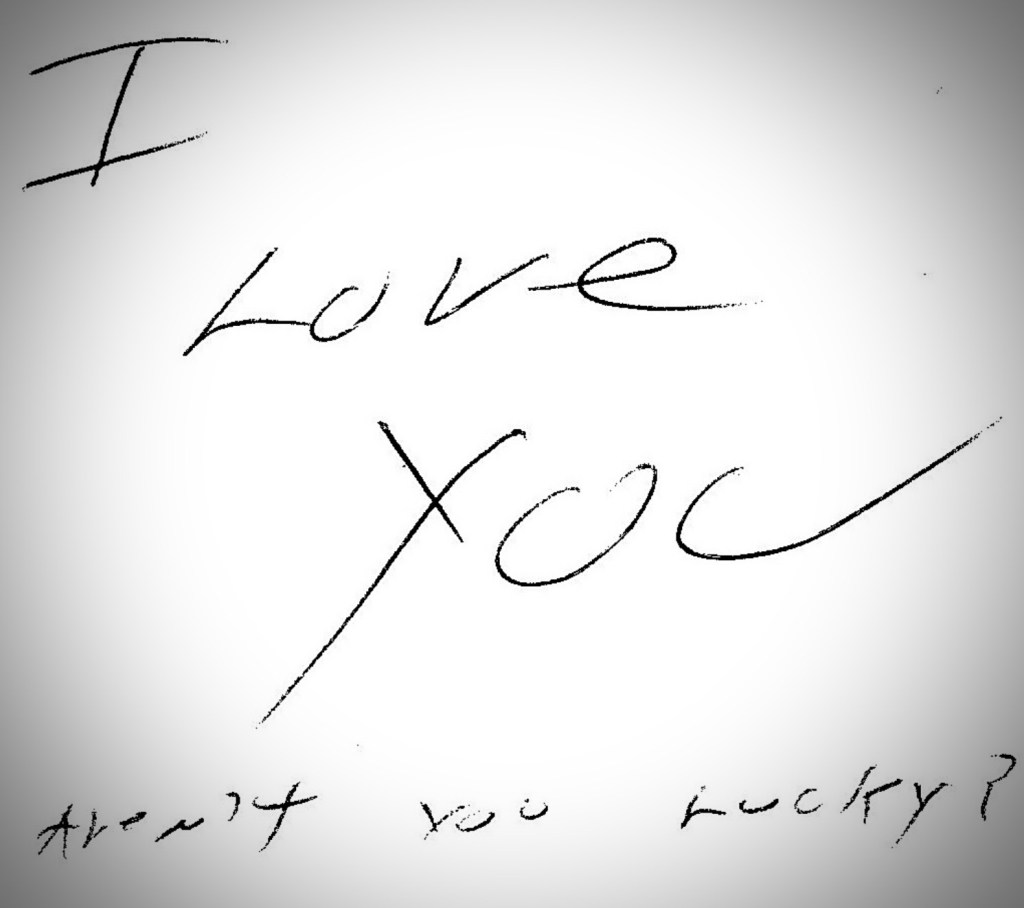 I
Love
You
Aren't you Lucky?